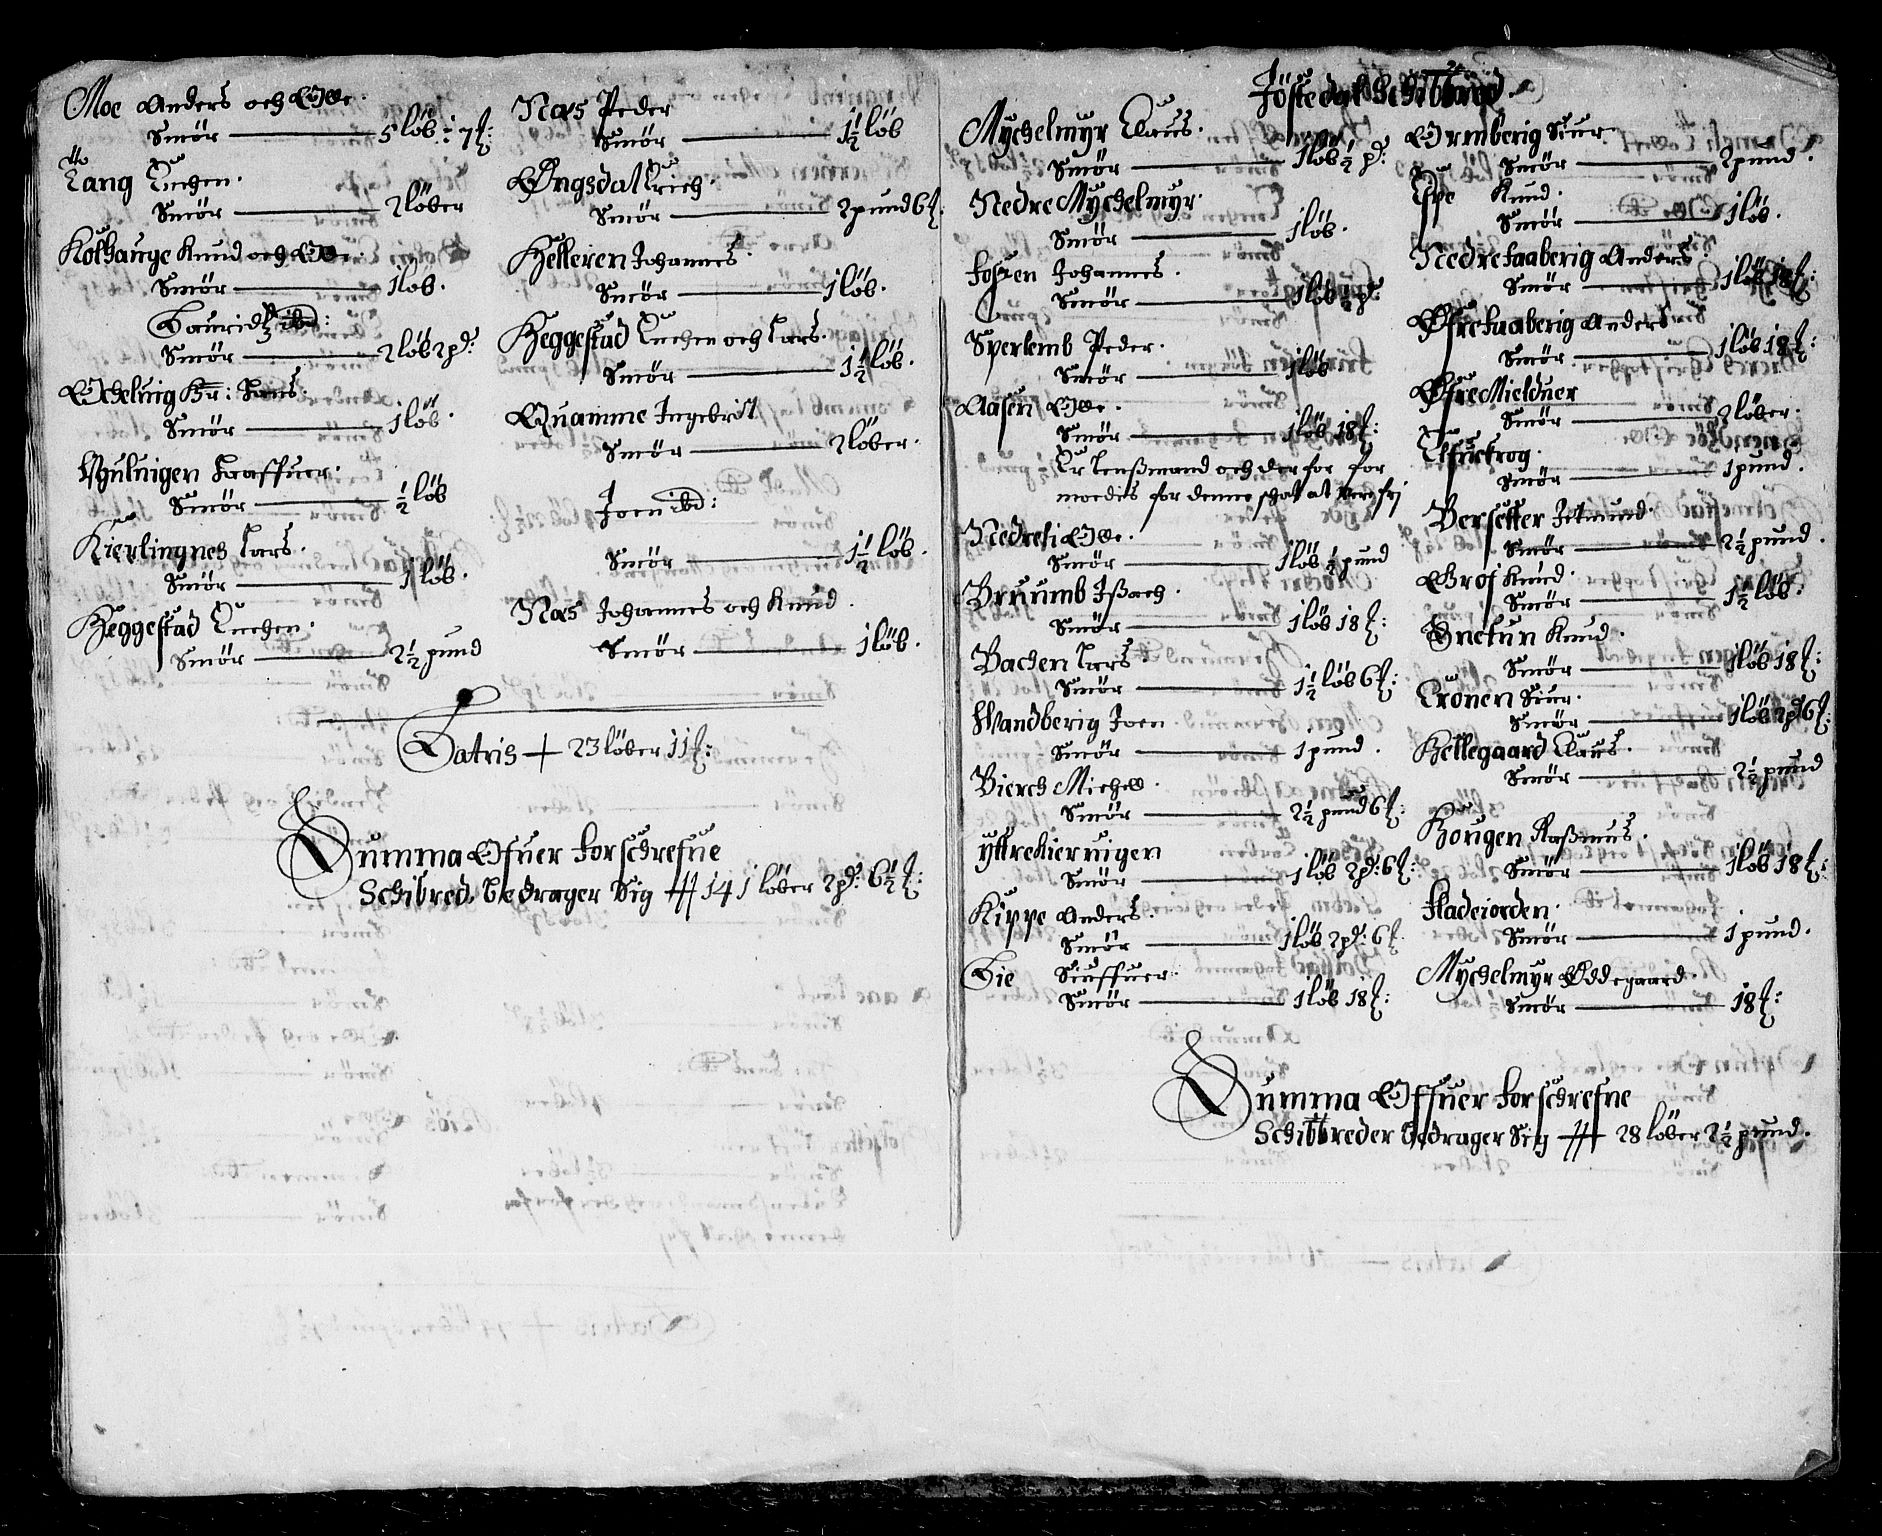 Moe Anders och Olle.
Smör 5 löb ÷ 7 ℔:
Tang Luchen.
Smör 2 löber
Kolhauge Knud och Olle.
Smör 1 löb.
Lauridtz ibd:
Smör 2 löb 2 pd:
Ocheluig Hr: Hans.
Smör 1 löb.
Vuluigen Laaffuer.
Smör ½ löb
Kierlingnes Lars.
Smör 1 löb.
Heggestad Luchen.
Smör 2½ pund
Næs Peder
Smör 1½ löb
Øngsdal Erich.
Smör 2 pund 6 ℔:
Helleren Johannes.
Smör 1 löb.
Heggestad Luchen och Lars.
Smör 1½ löb.
Quamme Ingebrict
Smör 2 löber.
Joen ibd:
Smör 1½ löb.
Næs Johannes och Knud.
Smör 1 löb.
Lateris 23 löber 11 ℔:
Summa Ofuer forschrefne
Schibred, bedrager Sig 141 löber 2 pd: 6½ ℔:
Jöstedal Schibbred.
Mychelmyr Claus.
Smör 1 löb ½ pd:
Nedre Mychelmyr.
Smör 1 löb.
Fossen Johannes.
Smör 1 löb ½ pd:
Sperlemb Peder.
Smör 1 löb
Aasen Olle.
Smör 1 löb 18 ℔:
Er lenßmand och derfor for
moedes for denne schat at were frj
Nedreli Olle.
Smör 1 löb ½ pund
Bruumb Ißach.
Smör 1 löb 18 ℔:
Bachen Lars.
Smör 1½ löb 6 ℔:
Wandberig Joen
Smör 1 pund.
Bierch Michell.
Smör 2½ pund 6 ℔:
yttre Kieruigen
Smör 1 löb 2 pd: 6 ℔:
Kippe Anders.
Smör 1 löb 2 pd: 6 ℔.
Lie Siuffuer.
Smör 1 löb 18 ℔:
Ormberig Siur.
Smör 2 pund.
Espe Knud.
Smör 1 löb.
Nedre faaberig Anders
Smör 1 löb 18 ℔:
Øfre faaberig Anders
Smör 1 löb 18 ℔:
Øfre Mielduer
Smör 2 löber.
Elfuekrog.
Smör 1 pund.
Bersetter Jetmund.
Smör 2½ pund.
Grof Knud.
Smör 1½ löb.
Snetun Knud.
Smör 1 löb 18 ℔:
Crönen Siur.
Smör 1 löb 2 pd 6 ℔:
Hellegaard Claus.
Smör 2½ pund
Hougen Raßmus.
Smör 1 löb 18 ℔:
Fladeiorden.
Smör 1 pund.
Mychelmyr Øddegaard.
Smör 18 ℔:
Summa Offuer forschrefne
Schibbreder bedrager Sig 28 löber 2½ pund.